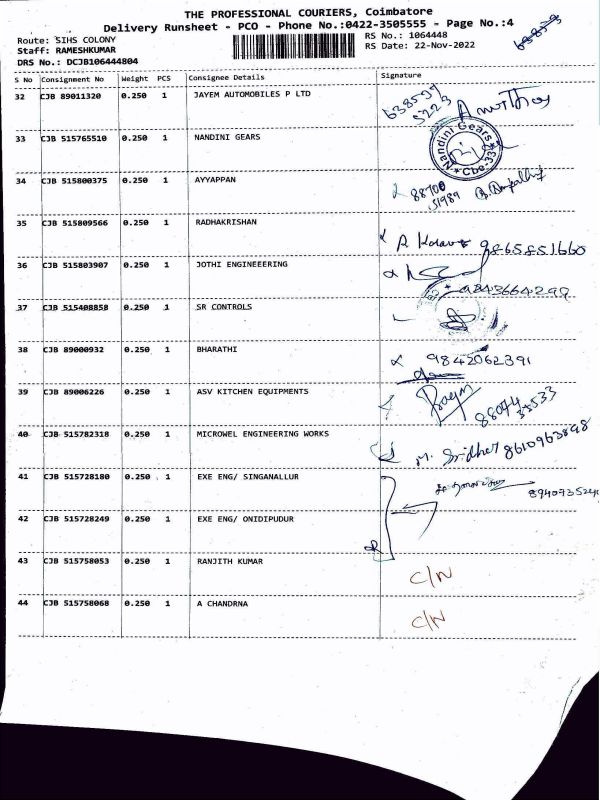 THE PROFESSIONAL COURIERS, Coimbatore
Delivery Runsheet - PCO - Phone No.:0422-3505555 - Page No.:4
Route: SIHS COLONY
RS No.: 1064448
Staff: RAMESHKUMAR
RS Date: 22-Nov-2022
DRS No.: DCJB106444804
S No Consignment No Weight PCS Consignee Details Signature
32 CJB 89011320 0.250 1 JAYEM AUTOMOBILES P LTD
33 CJB 515765510 0.250 1 NANDINI GEARS
Nandini Gears
34 CJB 515800375 0.250 1 AYYAPPAN
35 CJB 515809566 0.250 1 RADHAKRISHAN 9865851660
36 CJB 515803907 0.250 1 JOTHI ENGINEEERING
9843664299
37 CJB 515408858 0.250 1 SR CONTROLS
38 CJB 89000932 0.250 1 BHARATHI 9842062391
39 CJB 89006226 0.250 1 ASV KITCHEN EQUIPMENTS
40 CJB 515782318 0.250 1 MICROWEL ENGINEERING WORKS M. Sridher 8610963898
41 CJB 515728180 0.250 1 EXE ENG/ SINGANALLUR
42 CJB 515728249 0.250 1 EXE ENG/ ONIDIPUDUR
43 CJB 515758053 0.250 1 RANJITH KUMAR C/N
44 CJB 515758068 0.250 1 A CHANDRNA C/N